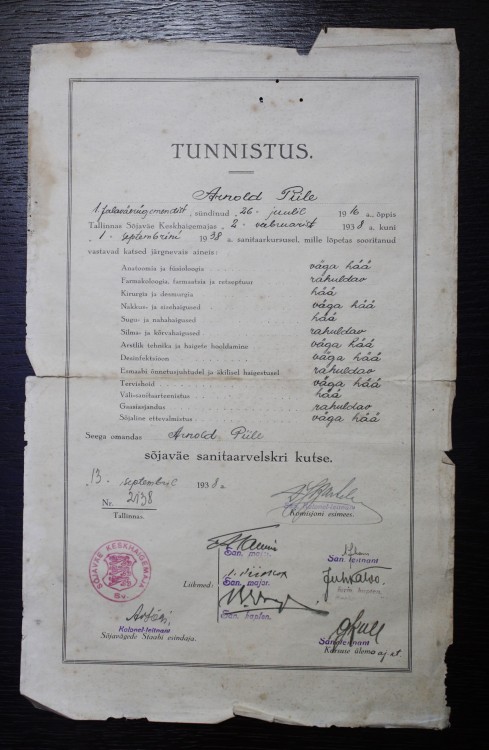 TUNNISTUS.
Arnold Piile
sündinud 26. juulil 1916 a., õppis
Tallinnas Sõjaväe Keskhaigemajas 2. veebruarist 1938 a. kuni
1. septembrini 1938 a. sanitaarkursusel, mille lõpetas sooritanud
vastavad katsed järgnevais aineis:
Anatoomia ja füsioloogia väga hää
Farmakoloogia, farmaatsia ja retseptuur rahuldav
Kirurgia ja desmurgia hää
Nakkus- ja sisehaigused väga hää
Sugu- ja nahahaigused hää
Silma- ja kõrvahaigused rahuldav
Arstlik tehnika ja haigete hooldamine väga hää
Desinfektsioon väga hää
Esmaabi õnnetusjuhtudel ja äkilisel haigestusel rahuldav
Tervishoid väga hää
Väli-sanitaarteenistus hää
Gaasiasjandus rahuldav
Sõjaline ettevalmistus väga hää
Seega omandas Arnold Piile
sõjaväe sanitaarvelskri kutse.
13. septembril 1938 a.
Nr. 2138
Tallinnas.
Komisjoni esimees.
SÕJAVÄE KESKHAIGEMAJA
Liikmed:
San. major.
San. leitnant
San. major.
San. kapten.
Kolonel-leitnant
Sõjavägede Staabi esindaja.
San. leitnant
Kursuse ülema aj. t.